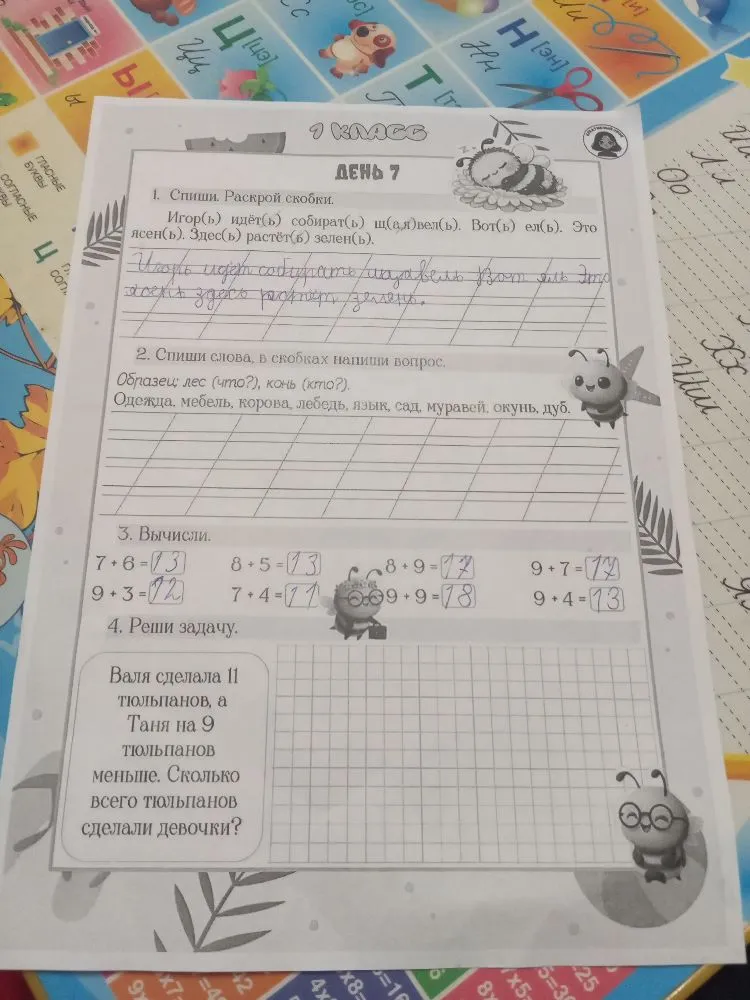 Цц
Ц [ЦЭ]
Нн
Н [ЭН]
Ии
Т
Ы
ГЛАСНЫЕ
БУКВЫ
СОГЛАСНЫЕ
Лл
Оо
Хх
1 КЛАСС
ДЕНЬ 7
1. Спиши. Раскрой скобки.
Игор(ь) идёт(ь) собират(ь) щ(а,я)вел(ь). Вот(ь) ел(ь). Это
ясен(ь). Здес(ь) растёт(ь) зелен(ь).
Игорь идёт собирать щавель Вот яль Это
ясень здесь растёт зелень.
2. Спиши слова, в скобках напиши вопрос.
Образец: лес (что?), конь (кто?).
Одежда, мебель, корова, лебедь, язык, сад, муравей, окунь, дуб.
3. Вычисли.
7 + 6 = 13 8 + 5 = 13 8 + 9 = 17 9 + 7 = 17
9 + 3 = 12 7 + 4 = 11 9 + 9 = 18 9 + 4 = 13
4. Реши задачу.
Валя сделала 11
тюльпанов, а
Таня на 9
тюльпанов
меньше. Сколько
всего тюльпанов
сделали девочки?